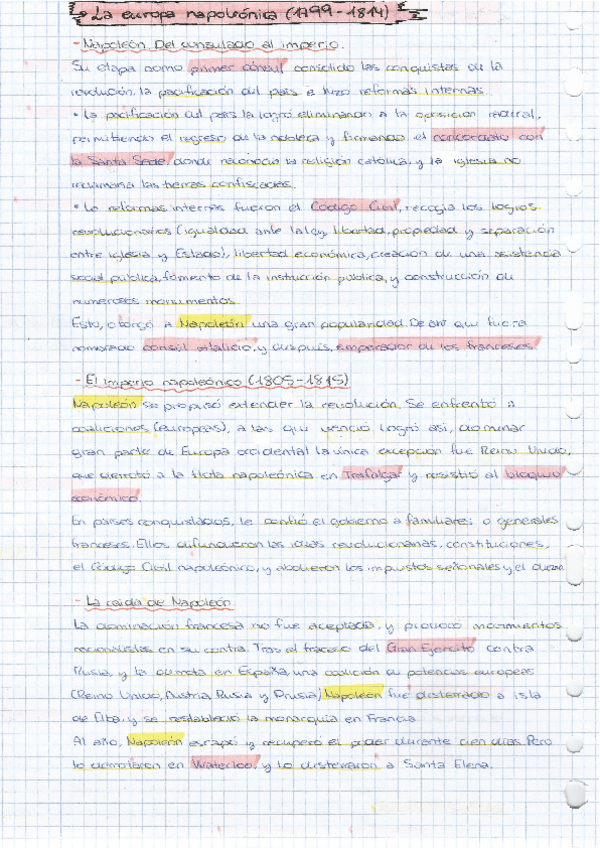 La europa napoleónica (1799-1814)
- Napoleón. Del consulado al imperio.
Su etapa como primer cónsul consolidó las conquistas de la
revolución, la pacificación del país e hizo reformas internas.
• La pacificación del país la logró eliminando a la oposición radical,
permitiendo el regreso de la nobleza y firmando el concordato con
la Santa Sede, donde reconocía la religión católica, y la iglesia no
reclamaría las tierras confiscadas.
• Las reformas internas fueron el Código Civil, recogía los logros
revolucionarios (igualdad ante la ley, libertad, propiedad y separación
entre iglesia y Estado), libertad económica, creación de una asistencia
social pública, fomento de la instrucción pública, y construcción de
numerosos monumentos.
Esto, otorgó a Napoleón una gran popularidad. De ahí que fuera
nombrado consúl vitalicio, y después, emperador de los franceses.
- El imperio napoleónico (1805-1815)
Napoleón se propusó extender la revolución. Se enfrentó a
coaliciones (europeas), a las que venció. Logró así, dominar
gran parte de Europa occidental la única excepción fue Reino Unido,
que derrotó a la flota napoleónica en Trafalgar y resistió al bloqueo
económico.
En países conquistados, le confió el gobierno a familiares o generales
franceses. Ellos difundieron las ideas revolucionarias, constituciones,
el Código Civil napoleónico, y abolieron los impuestos señoriales y el diezmo.
- La caída de Napoleón
La dominación francesa no fue aceptada, y provocó movimientos
nacionalistas en su contra. Tras el fracaso del Gran Ejercito contra
Rusia, y la derrota en España, una coalición de potencias europeas
(Reino Unido, Austria Rusia y Prusia) Napoleón fue desterrado a isla
de Elba, y se restableció la monarquía en Francia.
Al año, Napoleón escapó y recuperó el poder durante cien días. Pero
lo derrotaron en Waterloo, y lo desterraron a Santa Elena.